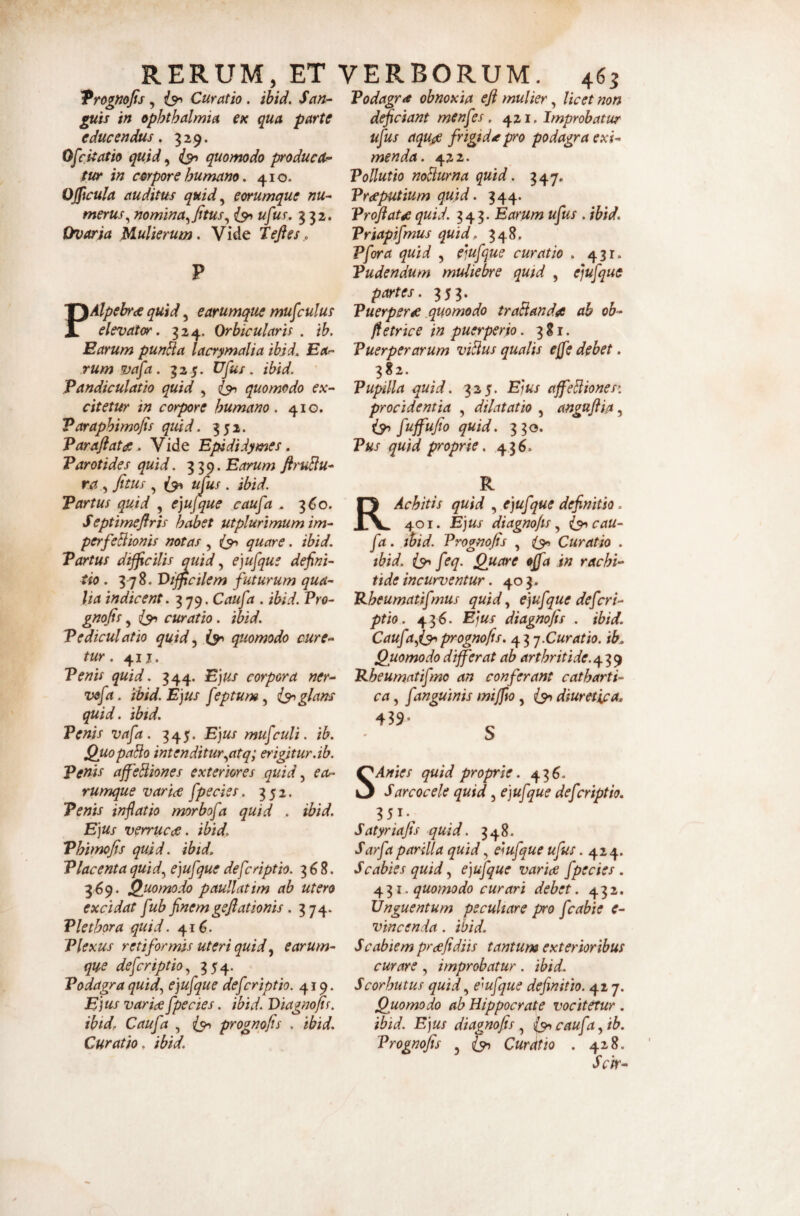 RERUM, ET VERBORUM. 463
Prognosis, & Curatio. ibid. San-
guis in ophthalmia ex qua parte
educendus. 329.
Oscitatio quid, & quomodo produca-
tur in corpore humano. 410.
Officula auditus quid, eorumque nu-
merus, nomina, situs, & usus. 332.
Ovaria Mulierum. Vide Testes.
P
PAlpebræ quid, earumque musculus
elevator. 324. Orbicularis. ib.
Earum puncta lacrymalia ibid. Ea-
rum vasa. 325. Usus. ibid.
Pandiculatio quid, & quomodo ex-
citetur in corpore humano. 410.
Paraphimosis quid. 352.
Parastatæ. Vide Epididymes.
Parotides quid. 339. Earum structu-
ra, situs, & usus. ibid.
Partus quid, ejusque causa. 360.
Septimestris habet utplurimum im-
perfectionis notas, & quare. ibid.
Partus difficilis quid, ejusque defini-
tio. 378. Difficilem futurum qua-
lia indicent. 379. Causa. ibid. Pro-
gnosis, & curatio. ibid.
Pediculatio quid, & quomodo cure-
tur. 411.
Penis quid. 344. Ejus corpora ner-
vosa. ibid. Ejus septum, & glans
quid. ibid.
Penis vasa. 345. Ejus musculi. ib.
Quo pacto intenditur, atq; erigitur. ib.
Penis affectiones exteriores quid, ea-
rumque variæ species. 352.
Penis inflatio morbosa quid. ibid.
Ejus verrucæ. ibid.
Phimosis quid. ibid.
Placenta quid, ejusque descriptio. 368.
369. Quomodo paullatim ab utero
excidat sub finem gestationis. 374.
Plethora quid. 416.
Plexus retiformis uteri quid, earum-
que descriptio, 354.
Podagra quid, ejusque descriptio. 419.
Ejus variæ species. ibid. Diagnosis.
ibid. Causa, & prognosis. ibid.
Curatio. ibid.
Podagræ obnoxia est mulier, licet non
deficiant menses. 421. Improbatur
usus aquæ frigidæ pro podagra exi-
menda. 422.
Pollutio nocturna quid. 347.
Præputium quid. 344.
Prostatæ quid. 343. Earum usus. ibid.
Priapismus quid. 348.
Psora quid, ejusque curatio. 431.
Pudendum muliebre quid, ejusque
partes. 353.
Puerperæ quomodo tractandæ ab ob-
stetrice in puerperio. 381.
Puerperarum victus qualis esse debet.
382.
Pupilla quid. 325. Ejus affectiones:
procidentia, dilatatio, angustia,
& suffusio quid. 330.
Pus quid proprie. 436.
R
RAchitis quid, ejusque definitio.
401. Ejus diagnosis, & cau-
sa. ibid. Prognosis, & Curatio.
ibid. & seq. Quare ossa in rachi-
tide incurventur. 403.
Rheumatismus quid, ejusque descri-
ptio. 436. Ejus diagnosis. ibid.
Causa, & prognosis. 437. Curatio. ib.
Quomodo differat ab arthritide. 439
Rheumatismo an conferant catharti-
ca, sanguinis missio, & diuretica.
439.
S
SAnies quid proprie. 436.
Sarcocele quid, ejusque descriptio.
351.
Satyriasis quid. 348.
Sarsa parilla quid, ejusque usus. 424.
Scabies quid, ejusque variæ species.
431. quomodo curari debet. 432.
Unguentum peculiare pro scabie e-
vincenda. ibid.
Scabiem præsidiis tantum exterioribus
curare, improbatur. ibid.
Scorbutus quid, ejusque definitio. 427.
Quomodo ab Hippocrate vocitetur.
ibid. Ejus diagnosis, & causa, ib.
Prognosis, & Curatio. 428.
Scir-